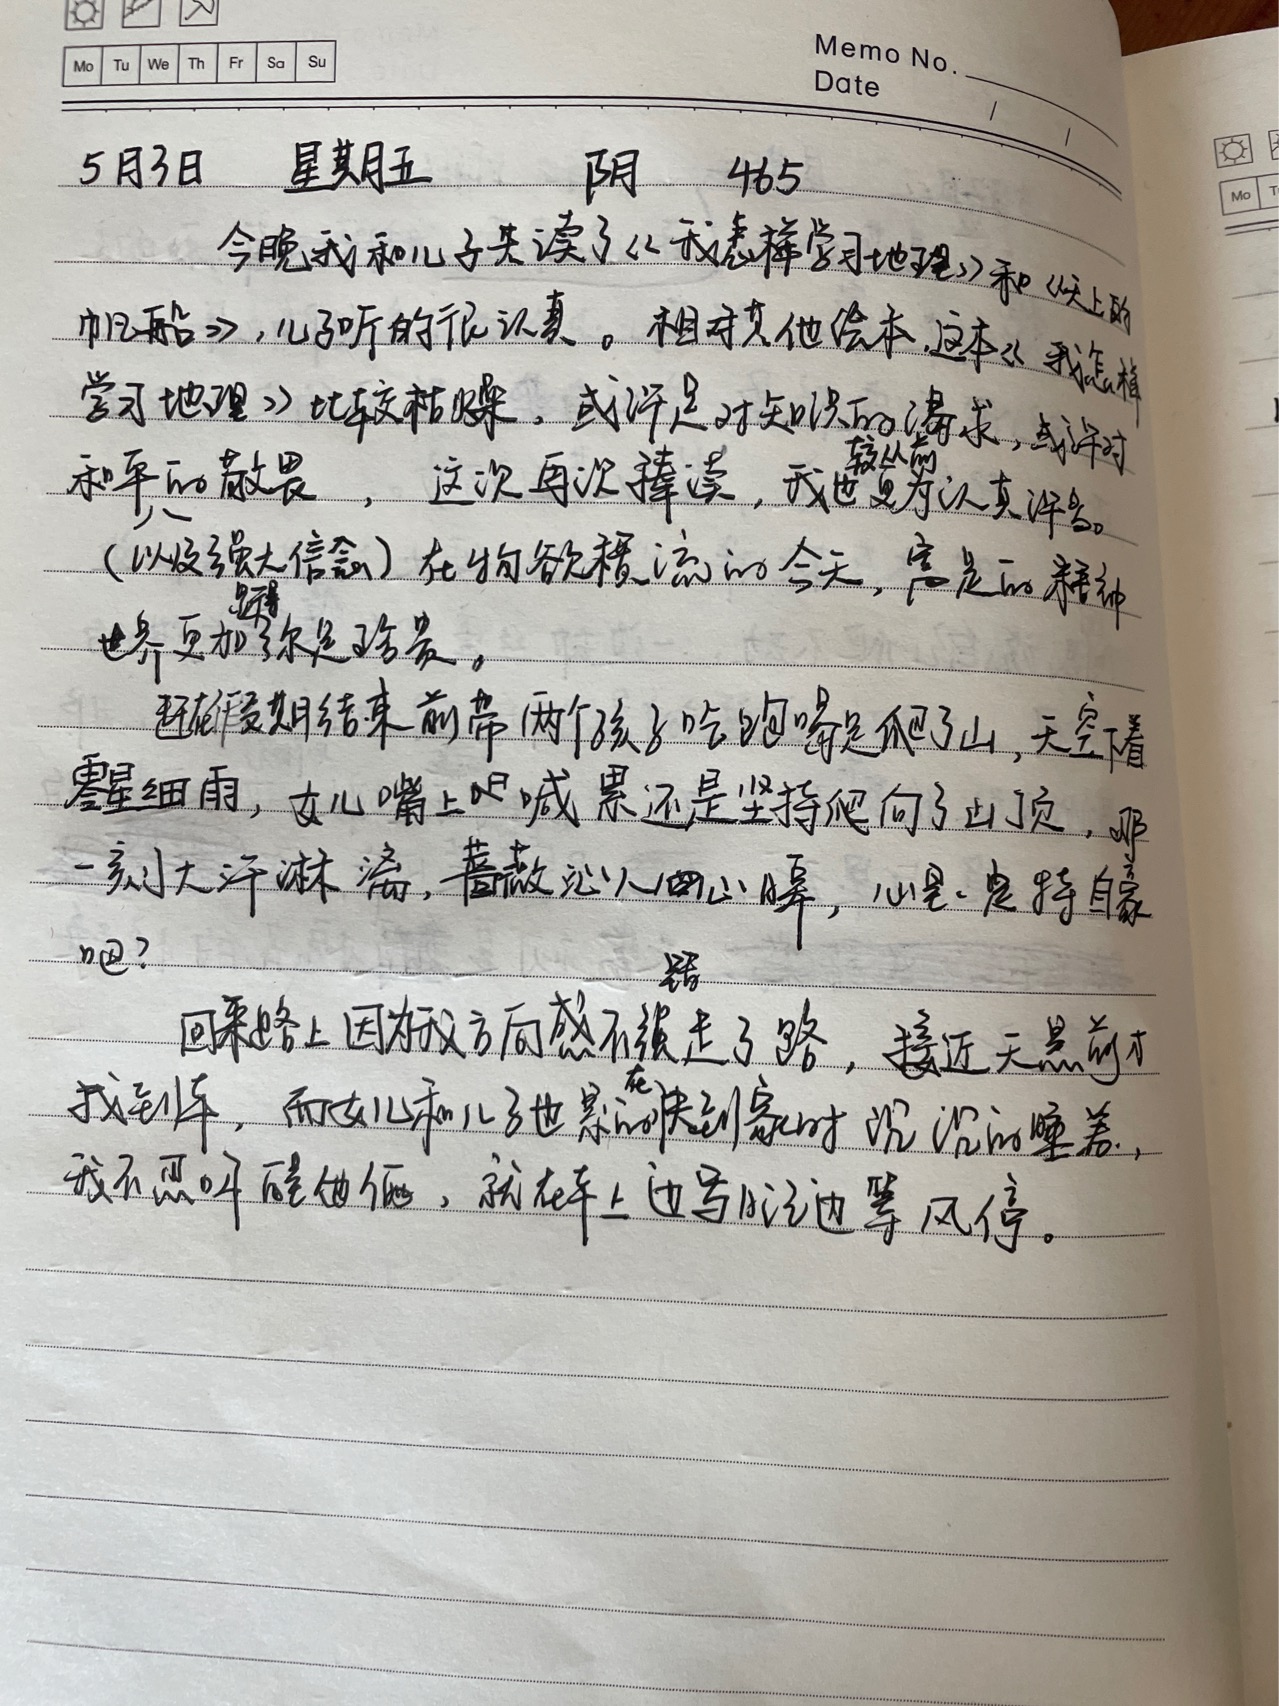 Mo Tu We Th Fr Sa Su
Memo No.
Date / /
5月3日 星期五 阴 465
今晚我和儿子共读了《我怎样学习地理》和《天上的
帆船》，儿子听的很认真。相对其他绘本，这本《我怎样
学习地理》比较枯燥，或许是对知识的渴求，或许对
和平的敬畏，这次再次捧读，我也较从前更为认真许多。
（以及强大信念）在物欲横流的今天，富足的精神
世界更加显得弥足珍贵。
赶在假期结束前带两个孩子哈跑喝足爬了山，天空下着
零星细雨，女儿嘴上吧喊累还是坚持爬向了山顶，那
一刻大汗淋漓，蔷薇沁人心脾，心里一定特自豪
吧？
回来路上因为我方向感不强走错了路，接近天黑前才
找到车，而女儿和儿子也累的在快到家时沉沉的睡着，
我不忍叫醒他俩，就在车上边写日记边等风停。
Mo